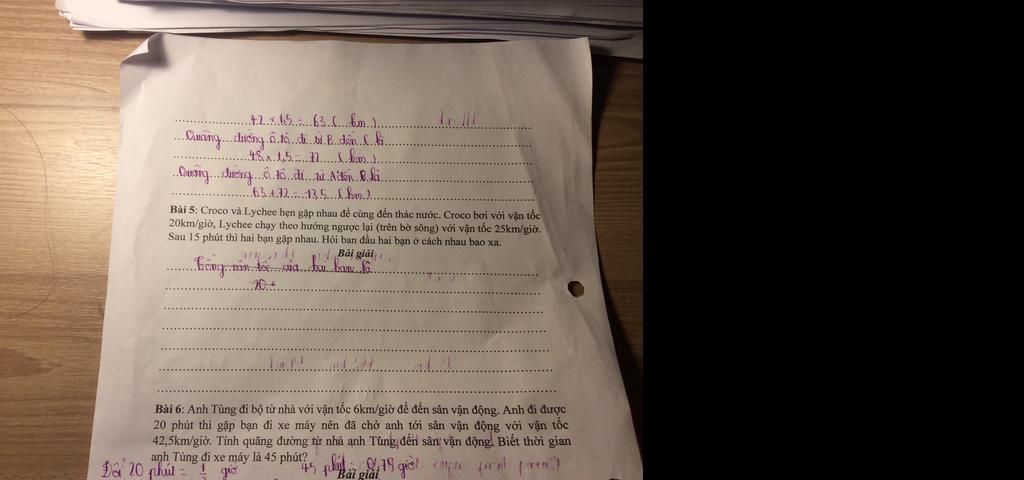 42 x 1,5 = 63 ( km )
Quãng đường ô tô đi từ B đến C là
48 x 1,5 = 72 ( km )
Quãng đường ô tô đi từ A đến B là
63 + 72 = 135 ( km )
Bài 5: Croco và Lychee hẹn gặp nhau để cùng đến thác nước. Croco bơi với vận tốc
20km/giờ, Lychee chạy theo hướng ngược lại (trên bờ sông) với vận tốc 25km/giờ.
Sau 15 phút thì hai bạn gặp nhau. Hỏi ban đầu hai bạn ở cách nhau bao xa.
Bài giải
Tổng vận tốc của hai bạn là
20 +
Bài 6: Anh Tùng đi bộ từ nhà với vận tốc 6km/giờ để đến sân vận động. Anh đi được
20 phút thì gặp bạn đi xe máy nên đã chở anh tới sân vận động với vận tốc
42,5km/giờ. Tính quãng đường từ nhà anh Tùng đến sân vận động. Biết thời gian
anh Tùng đi xe máy là 45 phút?
Đổi 20 phút = giờ 45 phút = 0,75 giờ
Bài giải